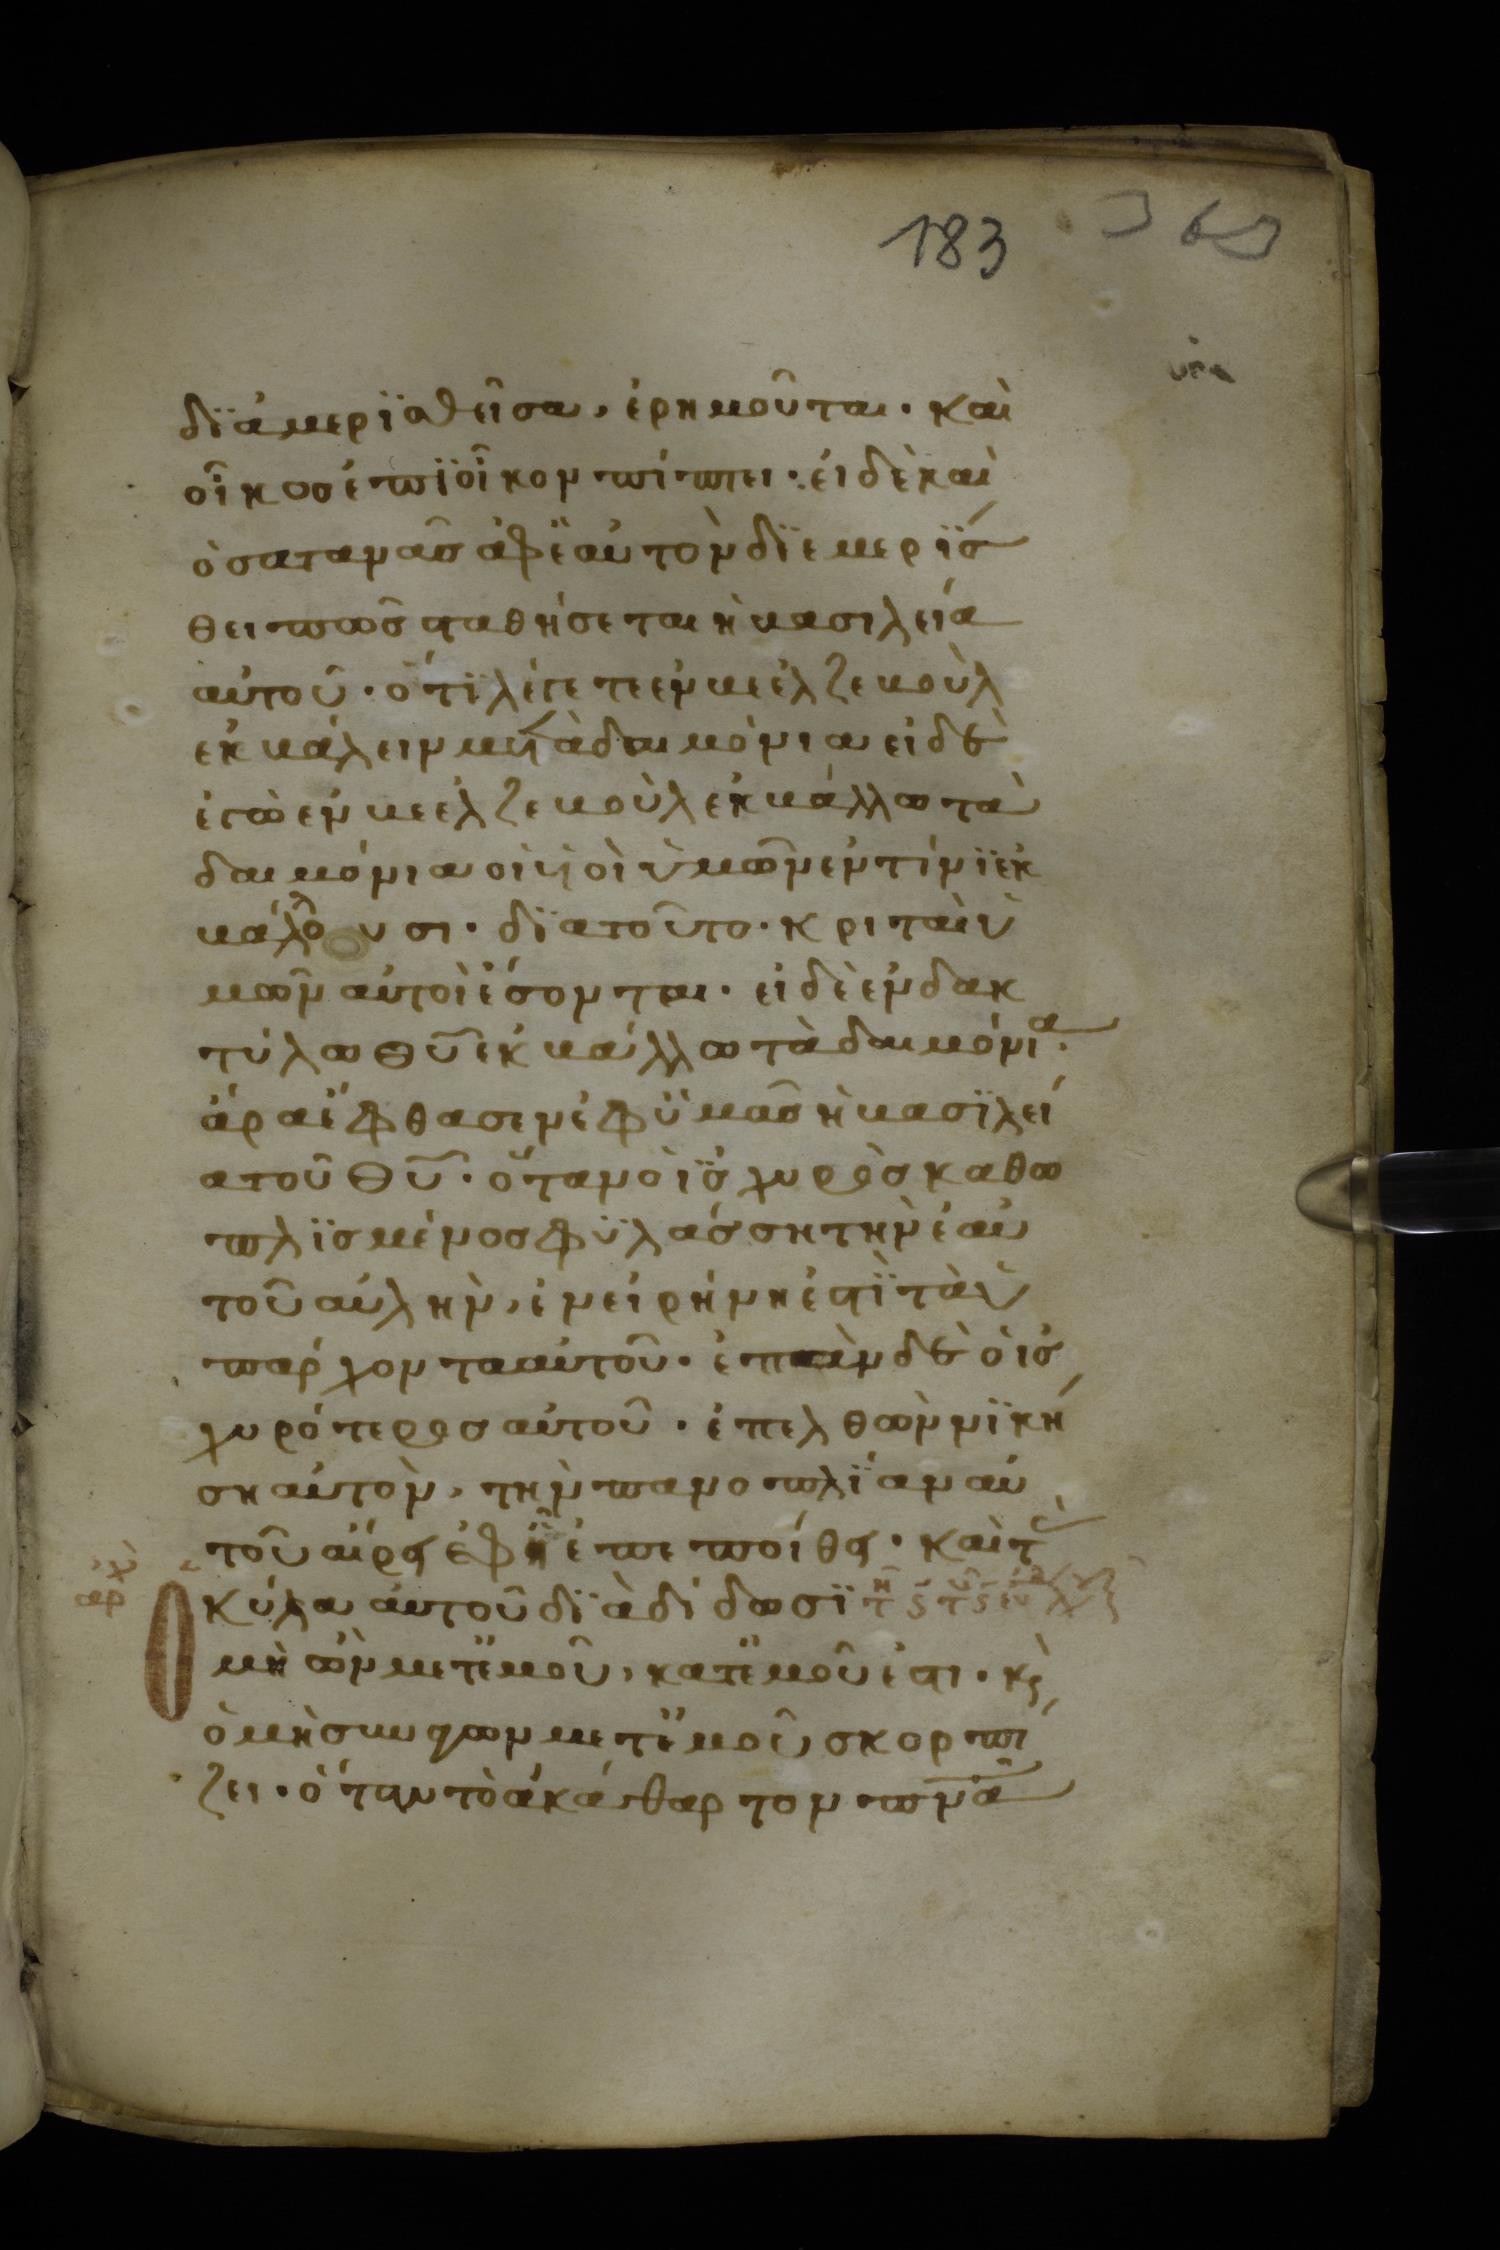 183
δϊαμερϊσθεῖσα, ἐρημοῦται· καὶ
οἶκοσ ἐπϊ οἶκον πίπτει· εἰ δὲ καὶ
ὁ σατανᾶσ ἀφ ἑαυτὸν δϊεμερϊσ
θει πῶσ σταθήσεται ἡ βασιλεία
αὐτοῦ· ὅτϊ λέγετε ἐν βεελζεβοὺλ
ἐκβάλειν με τὰ δαιμόνια εἰ δὲ
ἐγὼ ἐν βεελζεβοὺλ ἐκβάλλω τὰ
δαιμόνια οἱ ϋἱοὶ ὑμῶν ἐν τίνϊ ἐκ
βάλλουσι· δϊατοῦτο· κριταὶ ὑ
μῶν αὐτοὶ ἔσονται· εἰ δὲ ἐν δακ
τύλω θ̅υ̅ ἐκβάλλω τὰ δαιμόνια·
ἄρα ἔφθασεν ἐφ ϋμᾶσ ἡ βασϊλεί
α τοῦ θ̅υ̅· ὅταν ὁ ϊσχυρὸσ καθω
πλϊσμένοσ φϋλάσση τὴν ἑαυ
τοῦ αὐλὴν, ἐν εἰρήνη ἐστϊ τὰ ὑ
πάρχοντα αὐτοῦ· ἐπὰν δὲ ὁ ἰσ
χυρότεροσ αὐτοῦ· ἐπελθὼν νϊκή
ση αὐτὸν, τὴν πανοπλϊαν αὐ
τοῦ αἴρει ἐφ ἧ ἐπεποίθει· καὶ τὰ
ἀρχ
σκύλα αὐτοῦ δϊαδίδωσϊ
Ὁ μὴ ὢν μετ ἐμοῦ, κατ ἐμοῦ ἐστι· κ̀
ὁ μὴ συνάγων μετ ἐμοῦ σκορπί
ζει· ὅταν τὸ ἀκάθαρτον π̅ν̅α̅